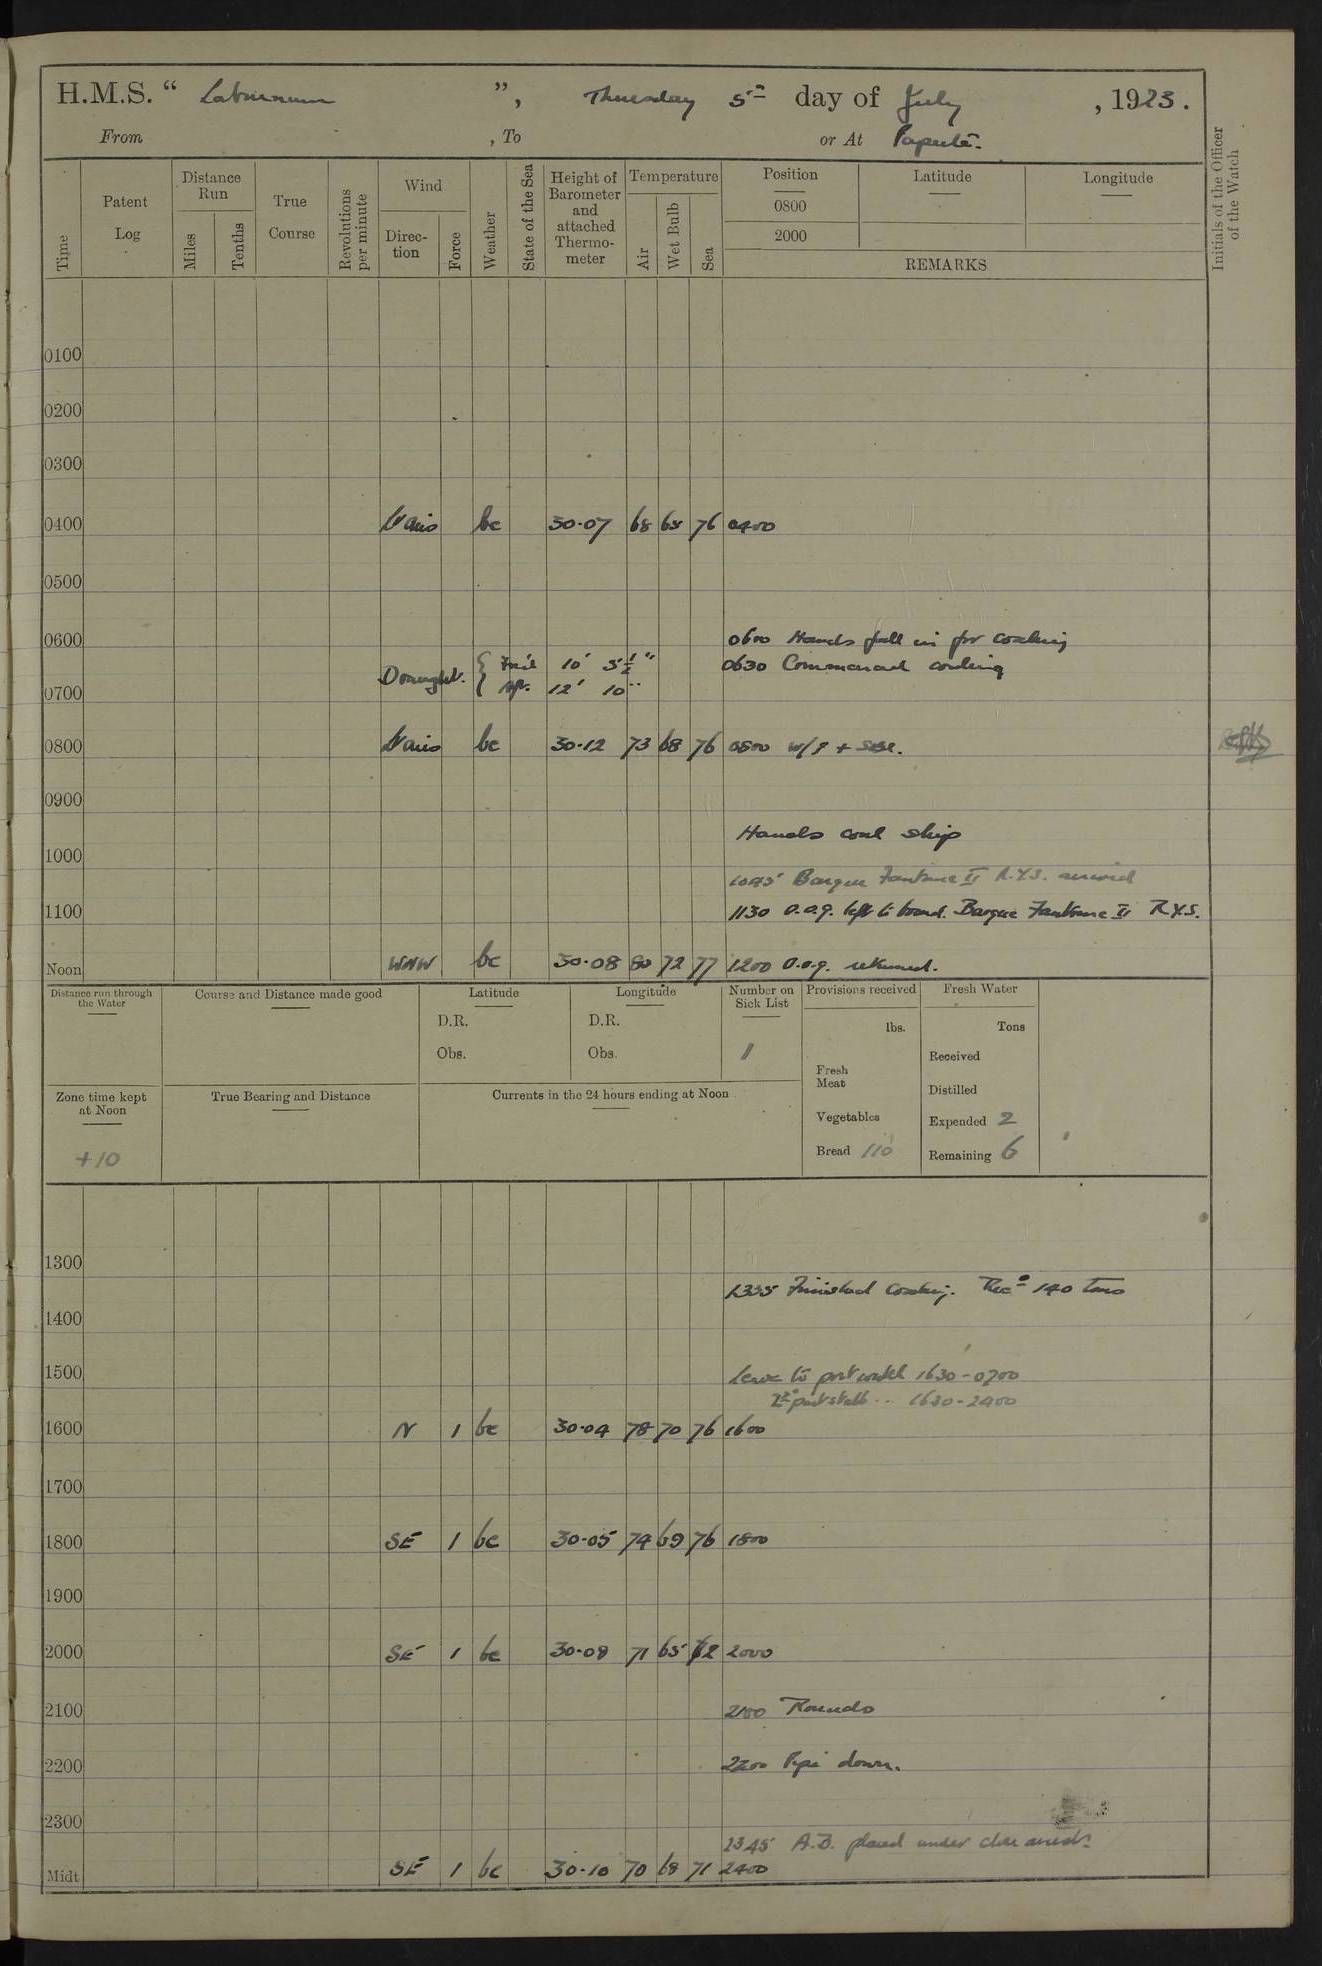 H.M.S. “ Laburnum ”, Thursday 5th day of July , 1923.
From , To or At Papeete.
Time
Patent Log
Distance Run
Miles
Tenths
True Course
Revolutions per minute
Wind
Direc-tion
Force
Weather
State of the Sea
Height of Barometer and attached Thermo-meter
Temperature
Air
Wet Bulb
Sea
Position
0800
2000
Latitude
Longitude
REMARKS
Initials of the Officer of the Watch
0100
0200
0300
0400 Vario bc 30·07 68 65 76 0400
0500
0600 0600 Hands fall in for coaling
0630 Commenced coaling
Draught. { For'd 10' 5½"
Aft. 12' 10"
0700
0800 Vario bc 30·12 73 68 76 0800
0900
Hands coal ship
1000
1045 Barque Fantome II R.Y.S. arrived
1100 1130 O.O.G. left to board. Barque Fantome II R.Y.S.
Noon WNW bc 30·08 80 72 77 1200 O.O.G. returned.
Distance run through the Water
Course and Distance made good
Latitude
D.R.
Obs.
Longitude
D.R.
Obs.
Number on Sick List
1
Provisions received
lbs.
Fresh Meat
Vegetables
Bread 110
Fresh Water
Tons
Received
Distilled
Expended 2
Remaining 6
Zone time kept at Noon
+10
True Bearing and Distance
Currents in the 24 hours ending at Noon
1300
1335 Finished Coaling. Recd 140 Tons
1400
1500 Leave to port watch 1630-0700
1630-2400
1600 N 1 bc 30·04 78 70 76 1600
1700
1800 SE 1 bc 30·05 74 69 76 1800
1900
2000 SE 1 bc 30·08 71 65 72 2000
2100 2100 Rounds
2200 2200 Pipe down.
2300
2345 A.B. placed under close arrest.
Midt SE 1 bc 30·10 70 68 71 2400